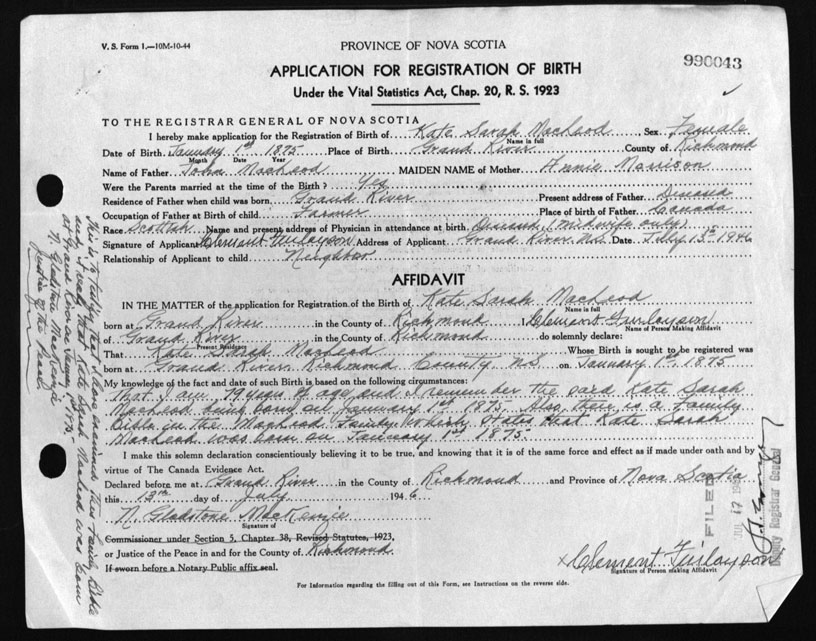 V. S. Form 1.—10M-10-44
PROVINCE OF NOVA SCOTIA
990043
APPLICATION FOR REGISTRATION OF BIRTH
Under the Vital Statistics Act, Chap. 20, R. S. 1923
TO THE REGISTRAR GENERAL OF NOVA SCOTIA
I hereby make application for the Registration of Birth of Kate Sarah MacLeod, Sex Female
Name in full
Date of Birth January 1st 1875 Place of Birth Grand River County of Richmond
Month Date Year
Name of Father John MacLeod MAIDEN NAME of Mother Annie Morrison
Were the Parents married at the time of the Birth? Yes
Residence of Father when child was born Grand River Present address of Father Diseased
Occupation of Father at Birth of child Farmer Place of birth of Father Canada
Race Scottish Name and present address of Physician in attendance at birth (Midwife only)
Signature of Applicant Clement Finlayson Address of Applicant Grand River N.S. Date July 13th 1946
Relationship of Applicant to child Neighbor
AFFIDAVIT
IN THE MATTER of the application for Registration of the Birth of Kate Sarah MacLeod
Name in full
born at Grand River in the County of Richmond I Clement Finlayson
Name of Person Making Affidavit
of Grand River in the County of Richmond do solemnly declare:
Present Residence
That Kate Sarah MacLeod Whose Birth is sought to be registered was
born at Grand River, Richmond County, N.S. on January 1st, 1875
My knowledge of the fact and date of such Birth is based on the following circumstances:
That I am 79 years of age and I remember the said Kate Sarah
MacLeod being born on January 1st 1875. Also, their is a Family
Bible in the MacLeod Family wherby States that Kate Sarah
MacLeod was born on January 1st 1875
I make this solemn declaration conscientiously believing it to be true, and knowing that it is of the same force and effect as if made under oath and by
virtue of The Canada Evidence Act.
Declared before me at Grand River in the County of Richmond and Province of Nova Scotia
this 13th day of July 1946
N. Gladstone MacKenzie
Signature of
Commissioner under Section 5, Chapter 38, Revised Statutes, 1923,
or Justice of the Peace in and for the County of Richmond.
If sworn before a Notary Public affix seal.
x Clement Finlayson
Signature of Person making Affidavit
For Information regarding the filling out of this Form, see Instructions on the reverse side.
This is To Testify that I have examined this Family Bible
and I read that Kate Sarah MacLeod was born
at Grand River January 1st 1875.
N. Gladstone MacKenzie
Justice of the Peace
FILED
JUL 17 19
Deputy Registrar General